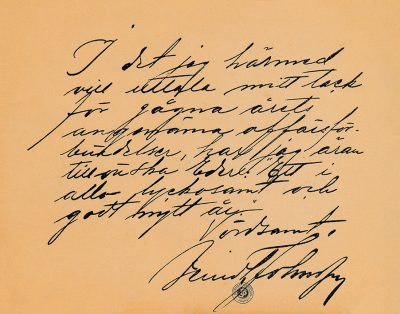 I det jag härmed
vill uttala mitt tack
för gågna årets
angenäma affärsför-
bindelser, har jag äran
tillönska Eder! Ett i
allo lyckosamt och
godt nytt år.
Vördsamt.